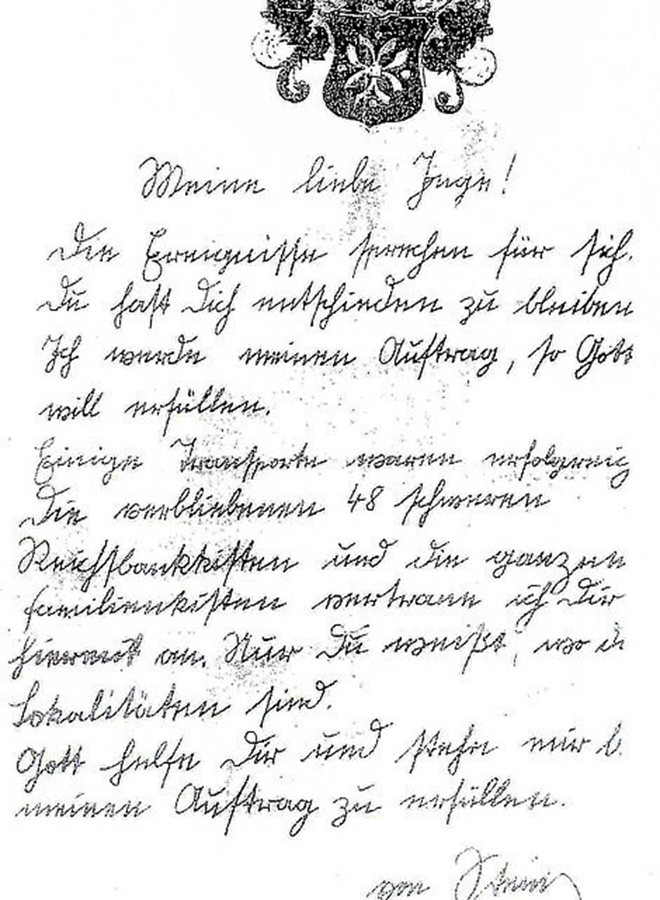 Meine liebe Inge!
Die Ereignisse sprechen für sich.
Du hast Dich entschieden zu bleiben
Ich werde meinen Auftrag, so Gott
will erfüllen.
Einige Transporte waren erfolgreig
Die verbliebenen 48 schweren
Reichsbankkisten und die ganzen
Familienkisten vertraue ich Dir
hiermit an. Nur Du weißt, wo d
Lokalitäten sind.
Gott helfe Dir und stehe mir b
meinen Auftrag zu erfüllen.
von Stein